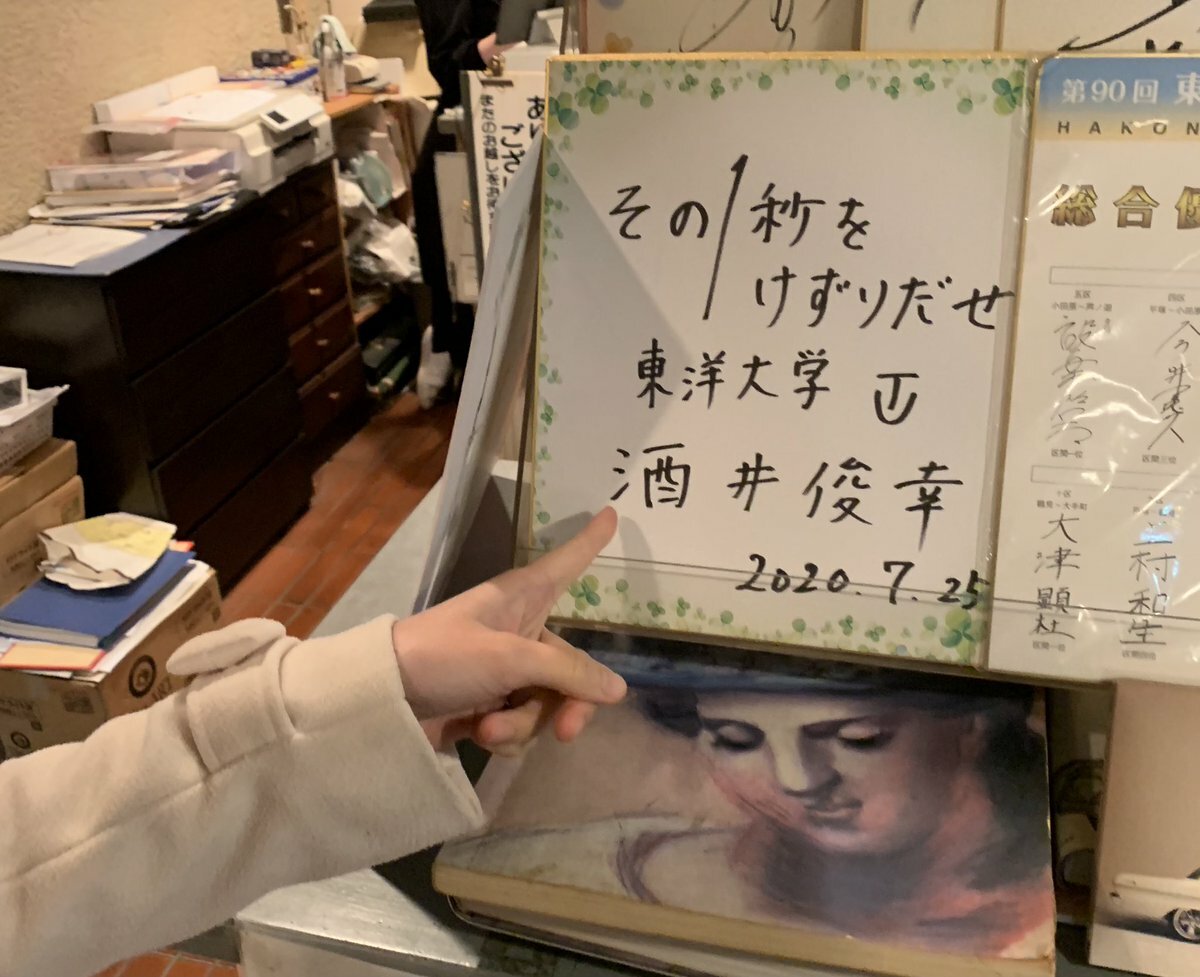 その1秒を
けずりだせ
東洋大学
酒井俊幸
2020.7.25
第90回 東
HAKON
総合優
五区
小田原〜芦ノ湖
区間一位
四区
平塚〜小田原
今井憲久
区間三位
十区
鶴見〜大手町
大津顕杜
区間一位
村和生
区間四位
ござい
またのお越しをお